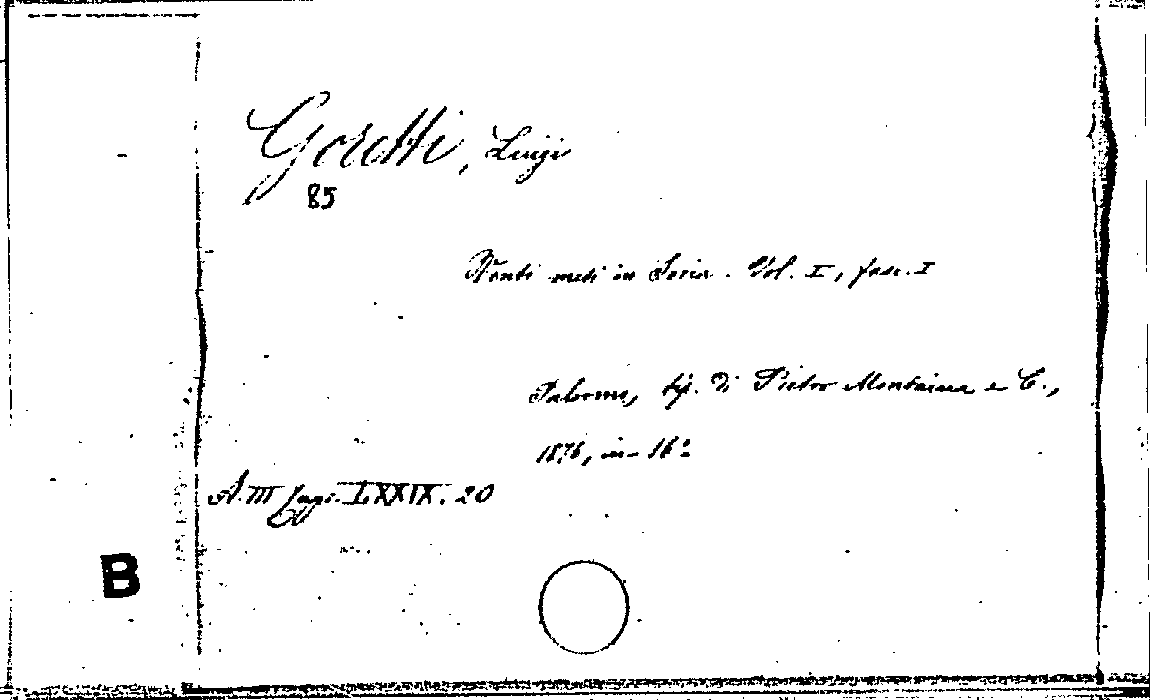 Goretti, Luigi
85
Venti mesi in Soria. Vol. I, fasc. I
Palermo, tip. di Pietro Montaina e C.,
1876, in-16°
A. III LXXIX. 20
B